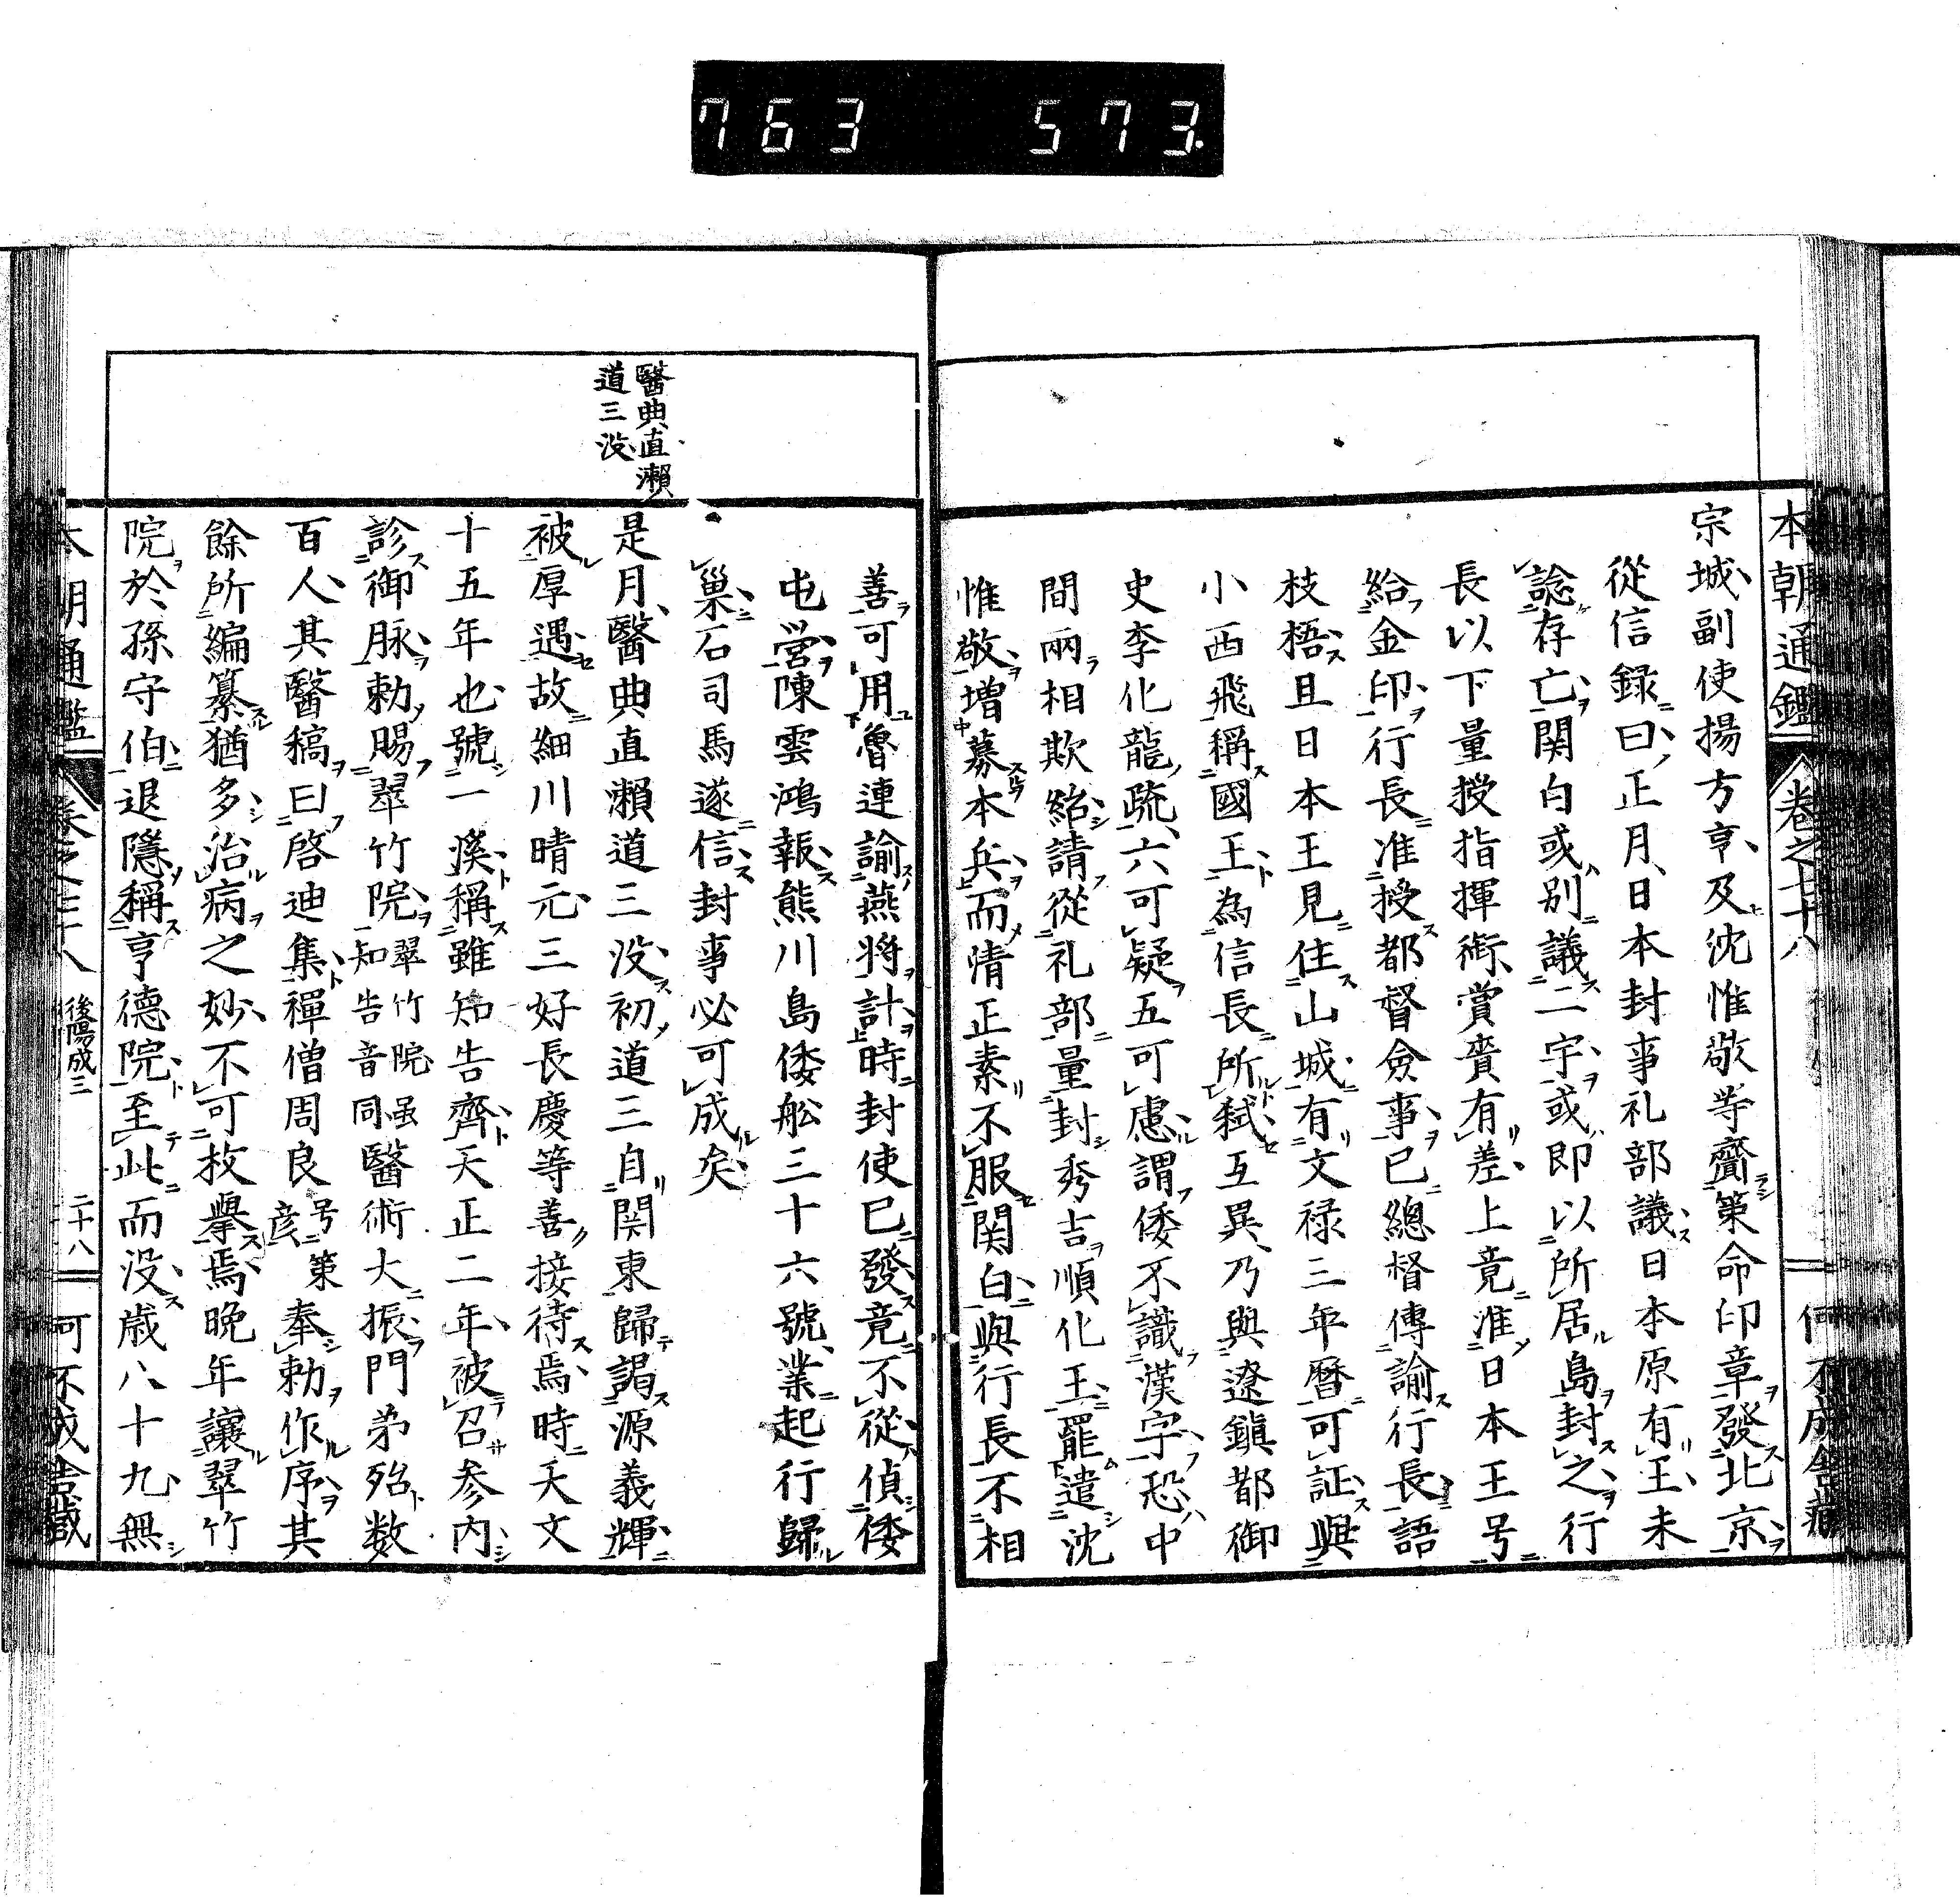 763 573.
本朝通鑑 卷之七十八 何不成舎蔵
宗城副使揚方亨及沈惟敬等齎策命印章發北京
從信録曰正月日本封事礼部議日本原有王未
諗存亡関白或別議二字或即以所居島封之行
長以下量授指揮衔賞賚有差上竟准日本王号
給金印行長准授都督僉事已總督傳諭行長語
枝梧且日本王見住山城有文禄三年暦可証與
小西飛稱國王為信長所弑互異乃與遼鎮都御
史李化龍疏六可疑五可慮謂倭不識漢字恐中
間兩相欺紿請從礼部量封秀吉順化王罷遣沈
惟敬増募本兵而情正素不服関白與行長不相
善可用魯連諭燕将計時封使已發竟不從偵倭
屯営陳雲鴻報熊川島倭舩三十六號業起行歸
巢石司馬遂信封事必可成矣
醫典直瀬
道三没
是月醫典直瀬道三没初道三自関東歸謁源義輝
被厚遇故細川晴元三好長慶等善接待焉時天文
十五年也號一溪稱雖知告齊天正二年被召参内
診御脉勅賜翠竹院翠竹院虽知告音同醫術大振門弟殆数
百人其醫稿曰啓迪集禪僧周良号策彦奉勅作序其
餘所編纂猶多治病之妙不可枚擧焉晩年讓翠竹
院於孫守伯退隱稱亨德院至此而没歳八十九無
本朝通鑑 卷之七十八 後陽成三 二十八 何不成舎蔵